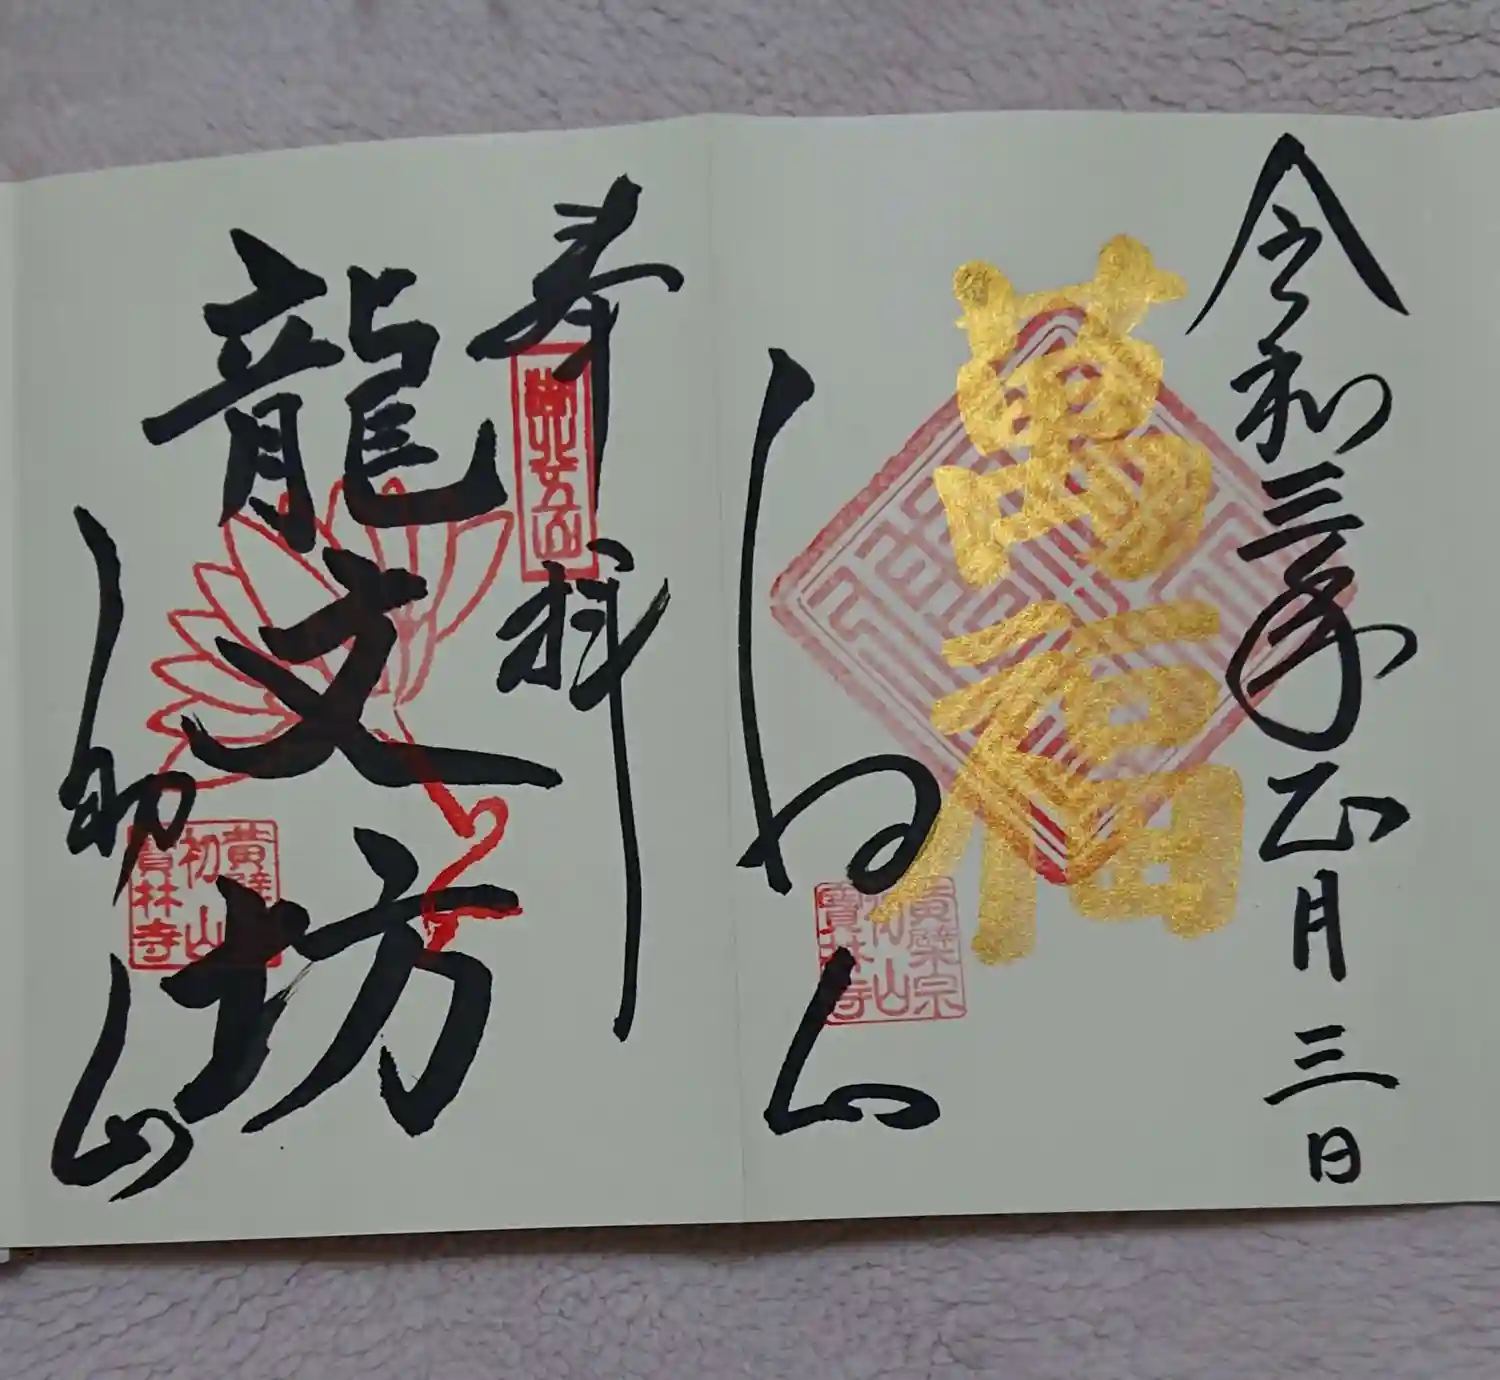 令和三年正月三日
萬福
初山
黄檗宗
初山
寳林寺
奉拝
龍文坊
初山
黄檗宗
初山
寳林寺